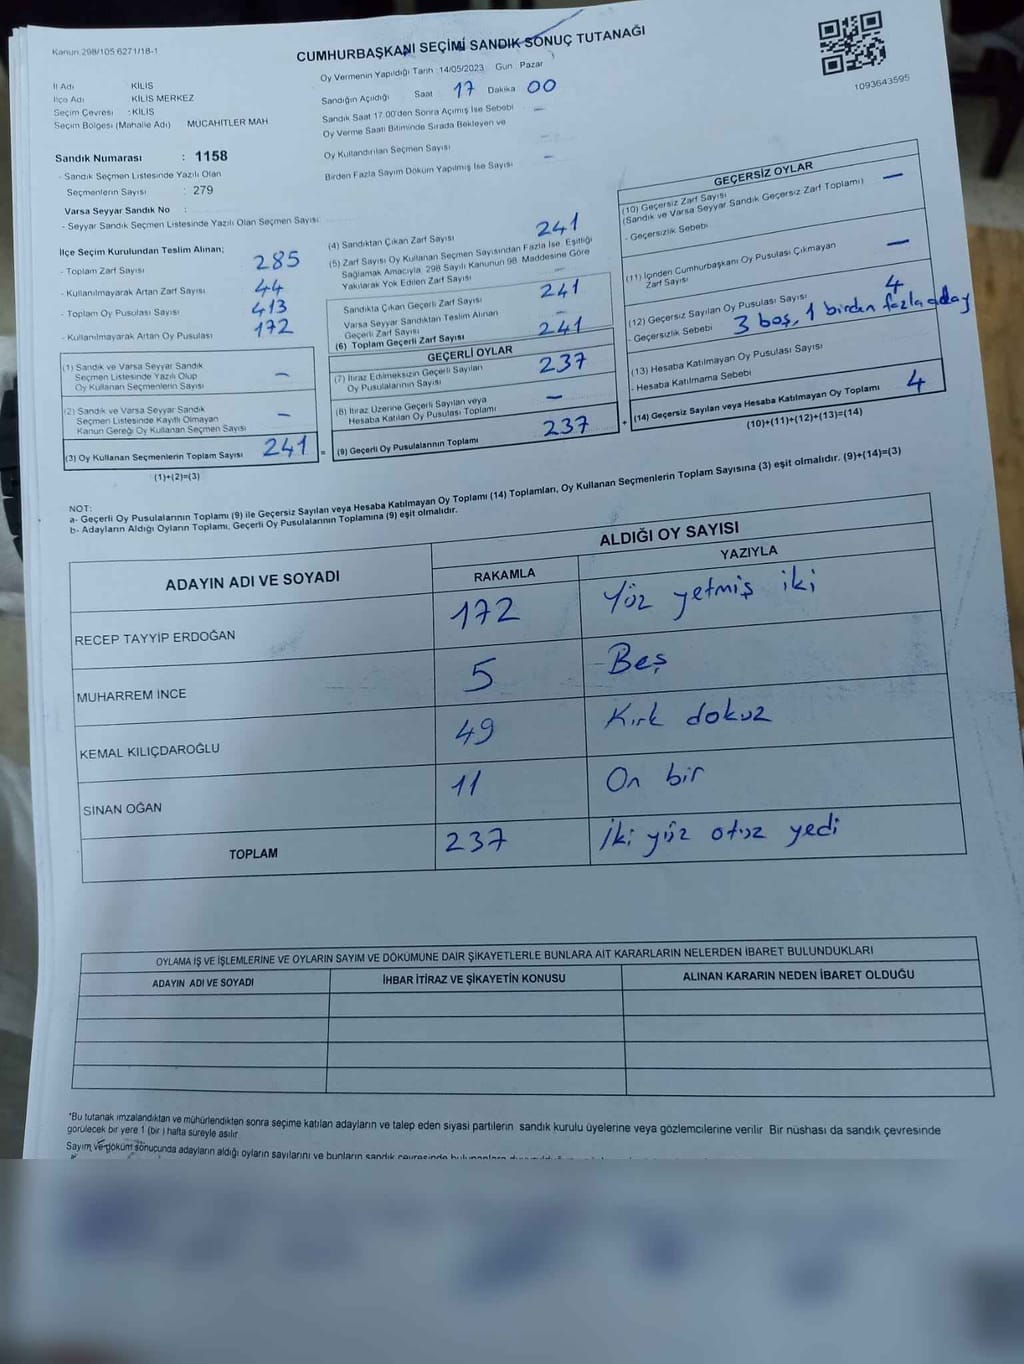 Kanun 298/105 6271/18-1
CUMHURBAŞKANI SEÇİMİ SANDIK SONUÇ TUTANAĞI
Oy Vermenin Yapıldığı Tarih : 14/05/2023 Gün : Pazar
1093643595
İl Adı KİLİS
İlçe Adı KİLİS MERKEZ
Seçim Çevresi : KİLİS
Seçim Bölgesi (Mahalle Adı) MÜCAHİTLER MAH
Sandık Numarası : 1158
- Sandık Seçmen Listesinde Yazılı Olan
Seçmenlerin Sayısı : 279
Varsa Seyyar Sandık No :
- Seyyar Sandık Seçmen Listesinde Yazılı Olan Seçmen Sayısı:
Sandığın Açıldığı Saat 17 Dakika 00
Sandık Saat 17.00'den Sonra Açımış İse Sebebi —
Oy Verme Saati Bitiminde Sırada Bekleyen ve
Oy Kullandırılan Seçmen Sayısı —
Birden Fazla Sayım Döküm Yapılmış İse Sayısı —
İlçe Seçim Kurulundan Teslim Alınan;
- Toplam Zarf Sayısı 285
- Kullanılmayarak Artan Zarf Sayısı 44
- Toplam Oy Pusulası Sayısı 413
- Kullanılmayarak Artan Oy Pusulası 172
(1) Sandık ve Varsa Seyyar Sandık
Seçmen Listesinde Yazılı Olup
Oy Kullanan Seçmenlerin Sayısı —
(2) Sandık ve Varsa Seyyar Sandık
Seçmen Listesinde Kayıtlı Olmayan
Kanun Gereği Oy Kullanan Seçmen Sayısı —
(3) Oy Kullanan Seçmenlerin Toplam Sayısı 241 =
(1)+(2)=(3)
(4) Sandıktan Çıkan Zarf Sayısı 241
(5) Zarf Sayısı Oy Kullanan Seçmen Sayısından Fazla İse, Eşitliği
Sağlamak Amacıyla, 298 Sayılı Kanunun 98. Maddesine Göre
Yakılarak Yok Edilen Zarf Sayısı —
Sandıkta Çıkan Geçerli Zarf Sayısı 241
Varsa Seyyar Sandıktan Teslim Alınan
Geçerli Zarf Sayısı —
(6) Toplam Geçerli Zarf Sayısı 241
GEÇERLİ OYLAR
(7) İtiraz Edilmeksizin Geçerli Sayılan
Oy Pusulalarının Sayısı 237
(8) İtiraz Üzerine Geçerli Sayılan veya
Hesaba Katılan Oy Pusulası Toplamı —
(9) Geçerli Oy Pusulalarının Toplamı 237 +
GEÇERSİZ OYLAR
(10) Geçersiz Zarf Sayısı
(Sandık ve Varsa Seyyar Sandık Geçersiz Zarf Toplamı) —
- Geçersizlik Sebebi
(11) İçinden Cumhurbaşkanı Oy Pusulası Çıkmayan
Zarf Sayısı —
(12) Geçersiz Sayılan Oy Pusulası Sayısı 4
- Geçersizlik Sebebi 3 boş, 1 birden fazla aday
(13) Hesaba Katılmayan Oy Pusulası Sayısı
- Hesaba Katılmama Sebebi
(14) Geçersiz Sayılan veya Hesaba Katılmayan Oy Toplamı 4
(10)+(11)+(12)+(13)=(14)
NOT:
a- Geçerli Oy Pusulalarının Toplamı (9) ile Geçersiz Sayılan veya Hesaba Katılmayan Oy Toplamı (14) Toplamları, Oy Kullanan Seçmenlerin Toplam Sayısına (3) eşit olmalıdır. (9)+(14)=(3)
b- Adayların Aldığı Oyların Toplamı, Geçerli Oy Pusulalarının Toplamına (9) eşit olmalıdır.
ADAYIN ADI VE SOYADI ALDIĞI OY SAYISI
RAKAMLA YAZIYLA
RECEP TAYYİP ERDOĞAN 172 Yüz yetmiş iki
MUHARREM İNCE 5 Beş
KEMAL KILIÇDAROĞLU 49 Kırk dokuz
SİNAN OĞAN 11 On bir
TOPLAM 237 İki yüz otuz yedi
OYLAMA İŞ VE İŞLEMLERİNE VE OYLARIN SAYIM VE DÖKÜMÜNE DAİR ŞİKAYETLERLE BUNLARA AİT KARARLARIN NELERDEN İBARET BULUNDUKLARI
ADAYIN ADI VE SOYADI İHBAR İTİRAZ VE ŞİKAYETİN KONUSU ALINAN KARARIN NEDEN İBARET OLDUĞU
*Bu tutanak imzalandıktan ve mühürlendikten sonra seçime katılan adayların ve talep eden siyasi partilerin sandık kurulu üyelerine veya gözlemcilerine verilir Bir nüshası da sandık çevresinde
görülecek bir yere 1 (bir ) hafta süreyle asılır
Sayım ve döküm sonucunda adayların aldığı oyların sayılarını ve bunların sandık çevresinde